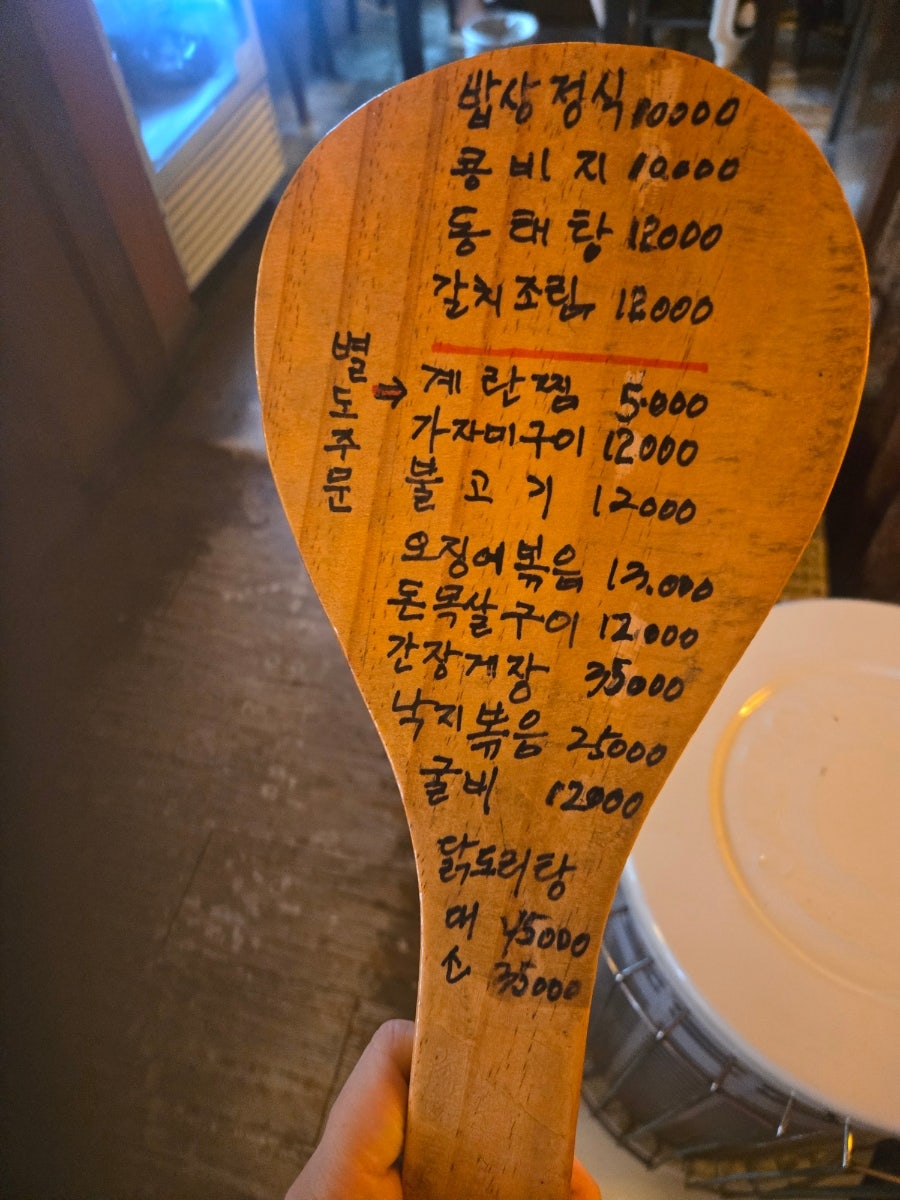 밥상정식 10000
콩비지 10.000
동태탕 12000
갈치조림 12000
별도주문
→ 계란찜 5.000
가자미구이 12000
불고기 12000
오징어볶음 13.000
돈목살구이 12.000
간장게장 35000
낙지볶음 25000
굴비 12000
닭도리탕
대 45000
소 35000